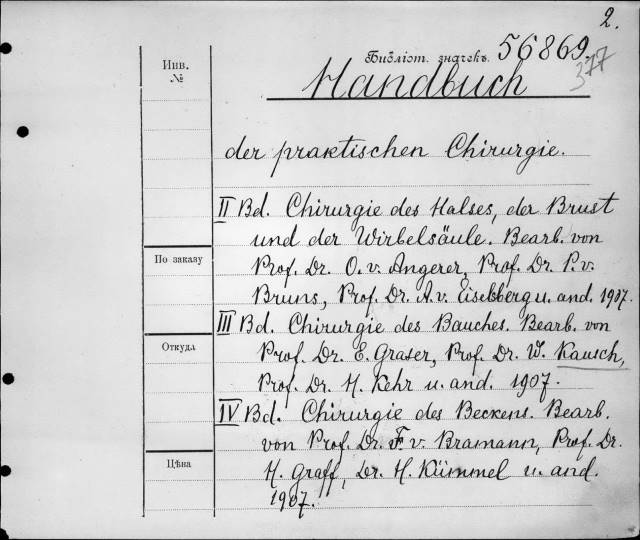 2.
Библіот. значекъ 56869.
377
Инв.
№
Handbuch
der praktischen Chirurgie.
II Bd. Chirurgie des Halses, der Brust
und der Wirbelsäule. Bearb. von
По заказу
Prof. Dr. O. v. Angerer, Prof. Dr. P. v.
Bruns, Prof. Dr. A. v. Eiselsberg u. and. 1907.
III Bd. Chirurgie des Bauches. Bearb. von
Откуда
Prof. Dr. E. Graser, Prof. Dr. W. Kausch,
Prof. Dr. H. Kehr u. and. 1907.
IV Bd. Chirurgie des Beckens. Bearb.
von Prof. Dr. F. v. Bramann, Prof. Dr.
Цѣна
H. Graff, Dr. H. Kümmel u. and.
1907.